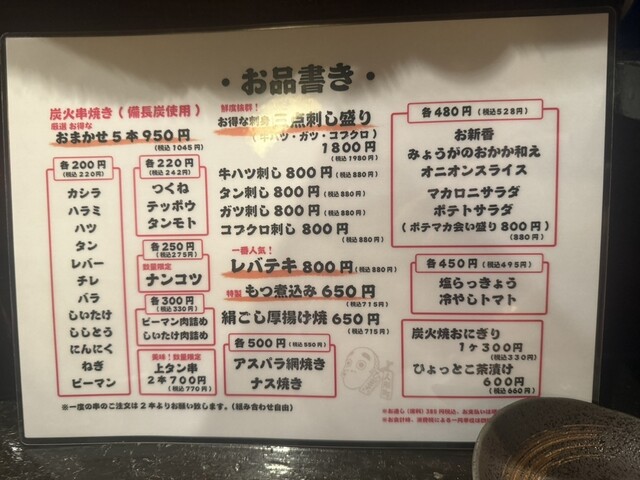 ・お品書き・
炭火串焼き(備長炭使用)
厳選 お得な
おまかせ5本950円
(税込1045円)
各200円
(税込220円)
カシラ
ハラミ
ハツ
タン
レバー
チレ
バラ
しいたけ
ししとう
にんにく
ねぎ
ピーマン
各220円
(税込242円)
つくね
テッポウ
タンモト
各250円
(税込275円)
数量限定
ナンコツ
各300円
(税込330円)
ピーマン肉詰め
しいたけ肉詰め
美味!数量限定
上タン串
2本700円
(税込770円)
※一度の串のご注文は2本よりお願い致します。(組み合わせ自由)
鮮度抜群!
お得な刺身 三点刺し盛り
(牛ハツ・ガツ・コブクロ)
1800円
(税込1980円)
牛ハツ刺し800円(税込880円)
タン刺し800円(税込880円)
ガツ刺し800円(税込880円)
コブクロ刺し800円
(税込880円)
一番人気!
レバテキ800円(税込880円)
特製 もつ煮込み650円
(税込715円)
絹ごし厚揚げ焼650円
(税込715円)
各500円(税込550円)
アスパラ網焼き
ナス焼き
各480円(税込528円)
お新香
みょうがのおかか和え
オニオンスライス
マカロニサラダ
ポテトサラダ
(ポテマカ会い盛り800円)
(880円)
各450円(税込495円)
塩らっきょう
冷やしトマト
炭火焼おにぎり
1ケ300円
(税込330円)
ひょっとこ茶漬け
600円
(税込660円)